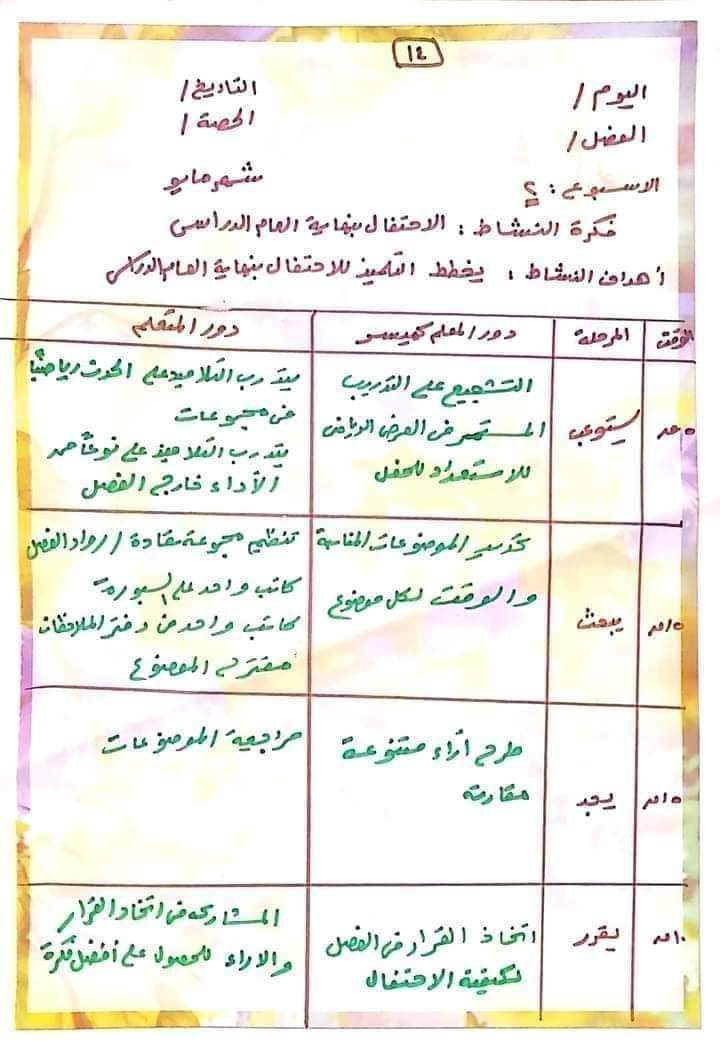 ١٤
اليوم / التاريخ /
الفصل / الحصة /
الاسبوع : ٢ شهر مايو
فكرة النشاط : الاحتفال بنهاية العام الدراسى
أهداف النشاط : يخطط التلميذ للاحتفال بنهاية العام الدراسى
الوقت المرحلة دور المعلم كميسر دور المتعلم
٥د يستوعب
التشجيع على التدريب
المستمر فى العرض الرياضى
للاستعداد للحفل
يتدرب التلاميذ على الحدث رياضيًا
فى مجموعات
يتدرب التلاميذ على نوعًا من
الأداء خارج الفصل
١٥د يبحث
تحديد الموضوعات المناسبة
والوقت لكل موضوع
تنظيم مجموعة مقادة / رواد الفصل
كاتب واحد على السبورة
كاتب واحد فى دفتر الملاحظات
مقترح الموضوع
١٥د يجد
طرح أراء متنوعة
مقارنه
مراجعة الموضوعات
١٠د يقرر
اتخاذ القرار فى الفصل
لكيفية الاحتفال
المشاركه فى اتخاذ القرار
والاراء للحصول على أفضل فكرة